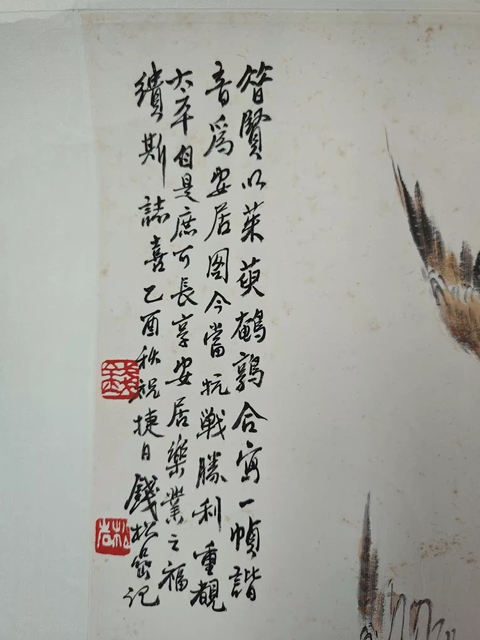 昔賢以茱萸鵪鶉合寫一幀諧
音為安居图今當抗戰勝利重覩
太平自是庶可長享安居樂業之福
繢斯誌喜乙酉秋祝捷日錢松喦記
錢
松喦